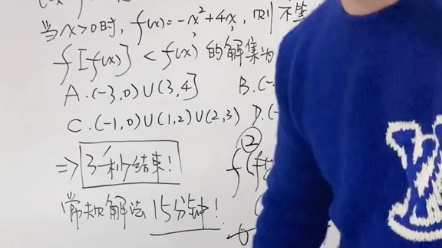 当x>0时, f(x)=-x²+4x, 则不等
f[f(x)]<f(x) 的解集为
A.(-3,0)∪(3,4] B.(-
C.(-1,0)∪(1,2)∪(2,3) D.(-
②
⇒ 3秒结束!
常规解法 15分钟!